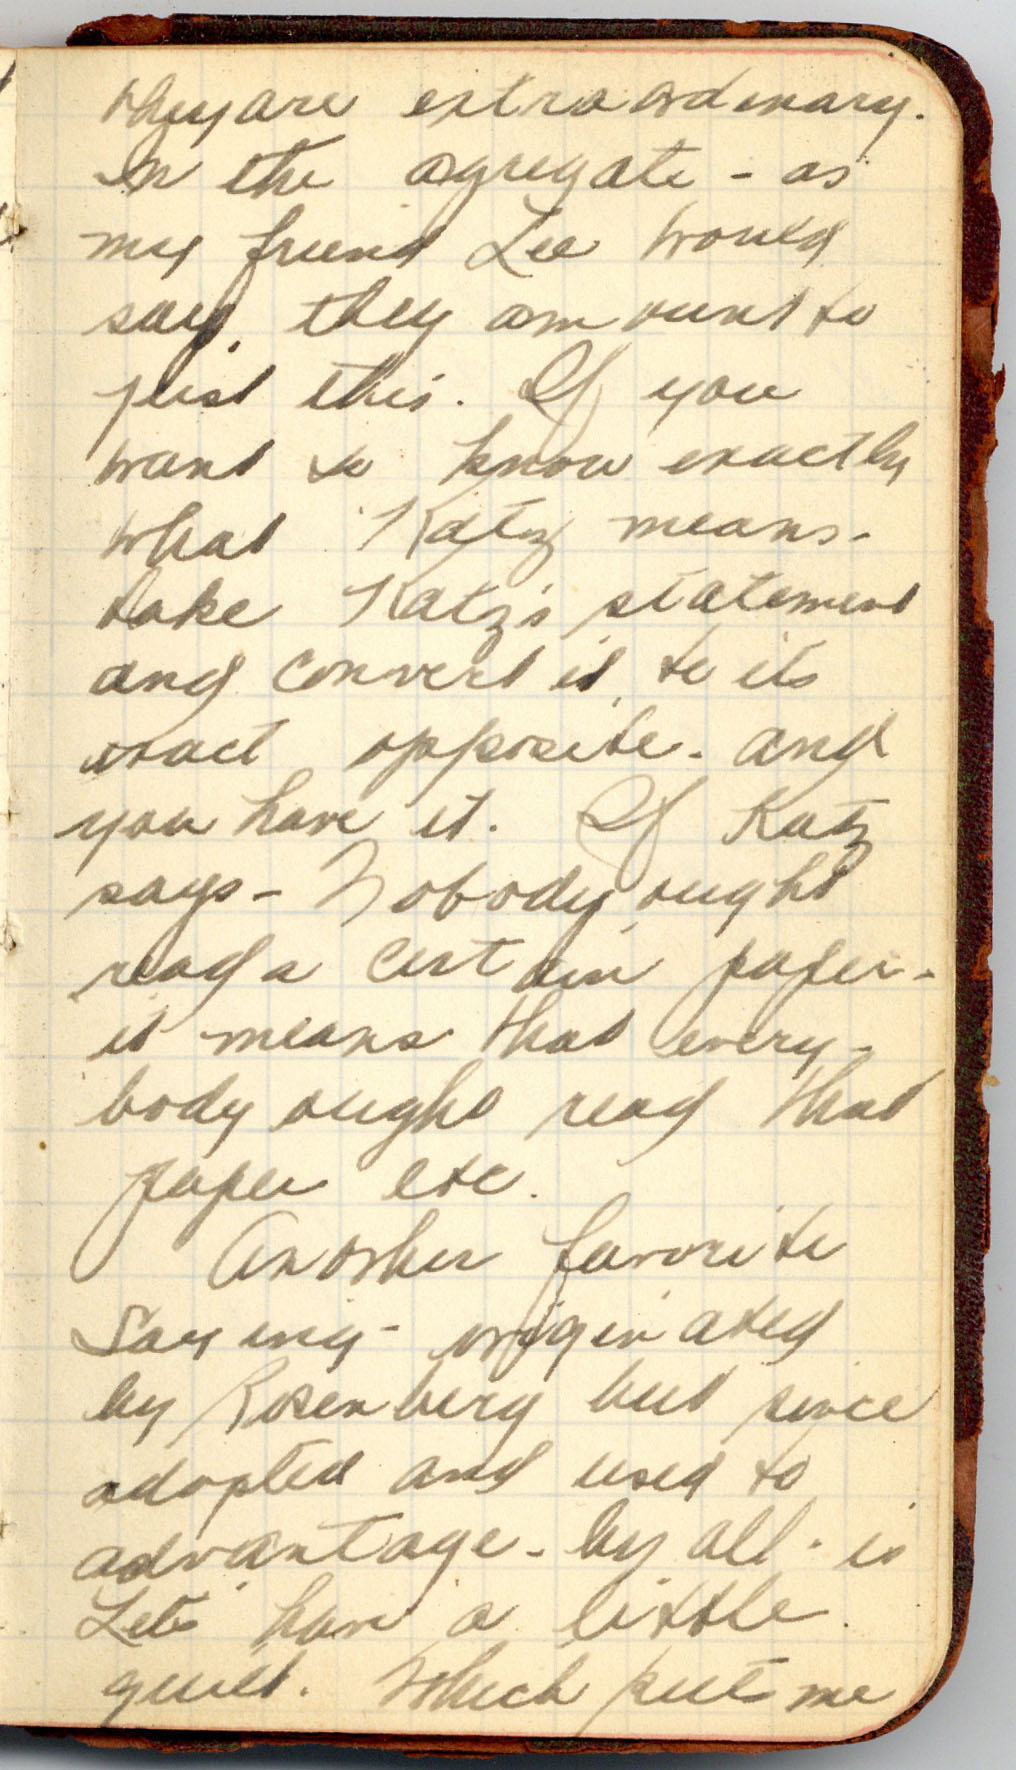 they are extraordinary.
In the agregate - as
my friend Lee would
say, they amount to
just this. If you
want to know exactly
what Katz means -
take Katz's statement
and convert it, to its
exact opposite - and
you have it. If Katz
says - Nobody ought
read a certain paper -
it means that every-
body ought read that
paper etc.
Another favorite
saying - originated
by Rosenberg but since
adopted and used to
advantage - by all - is
Lets have a little
quiet. Which put me